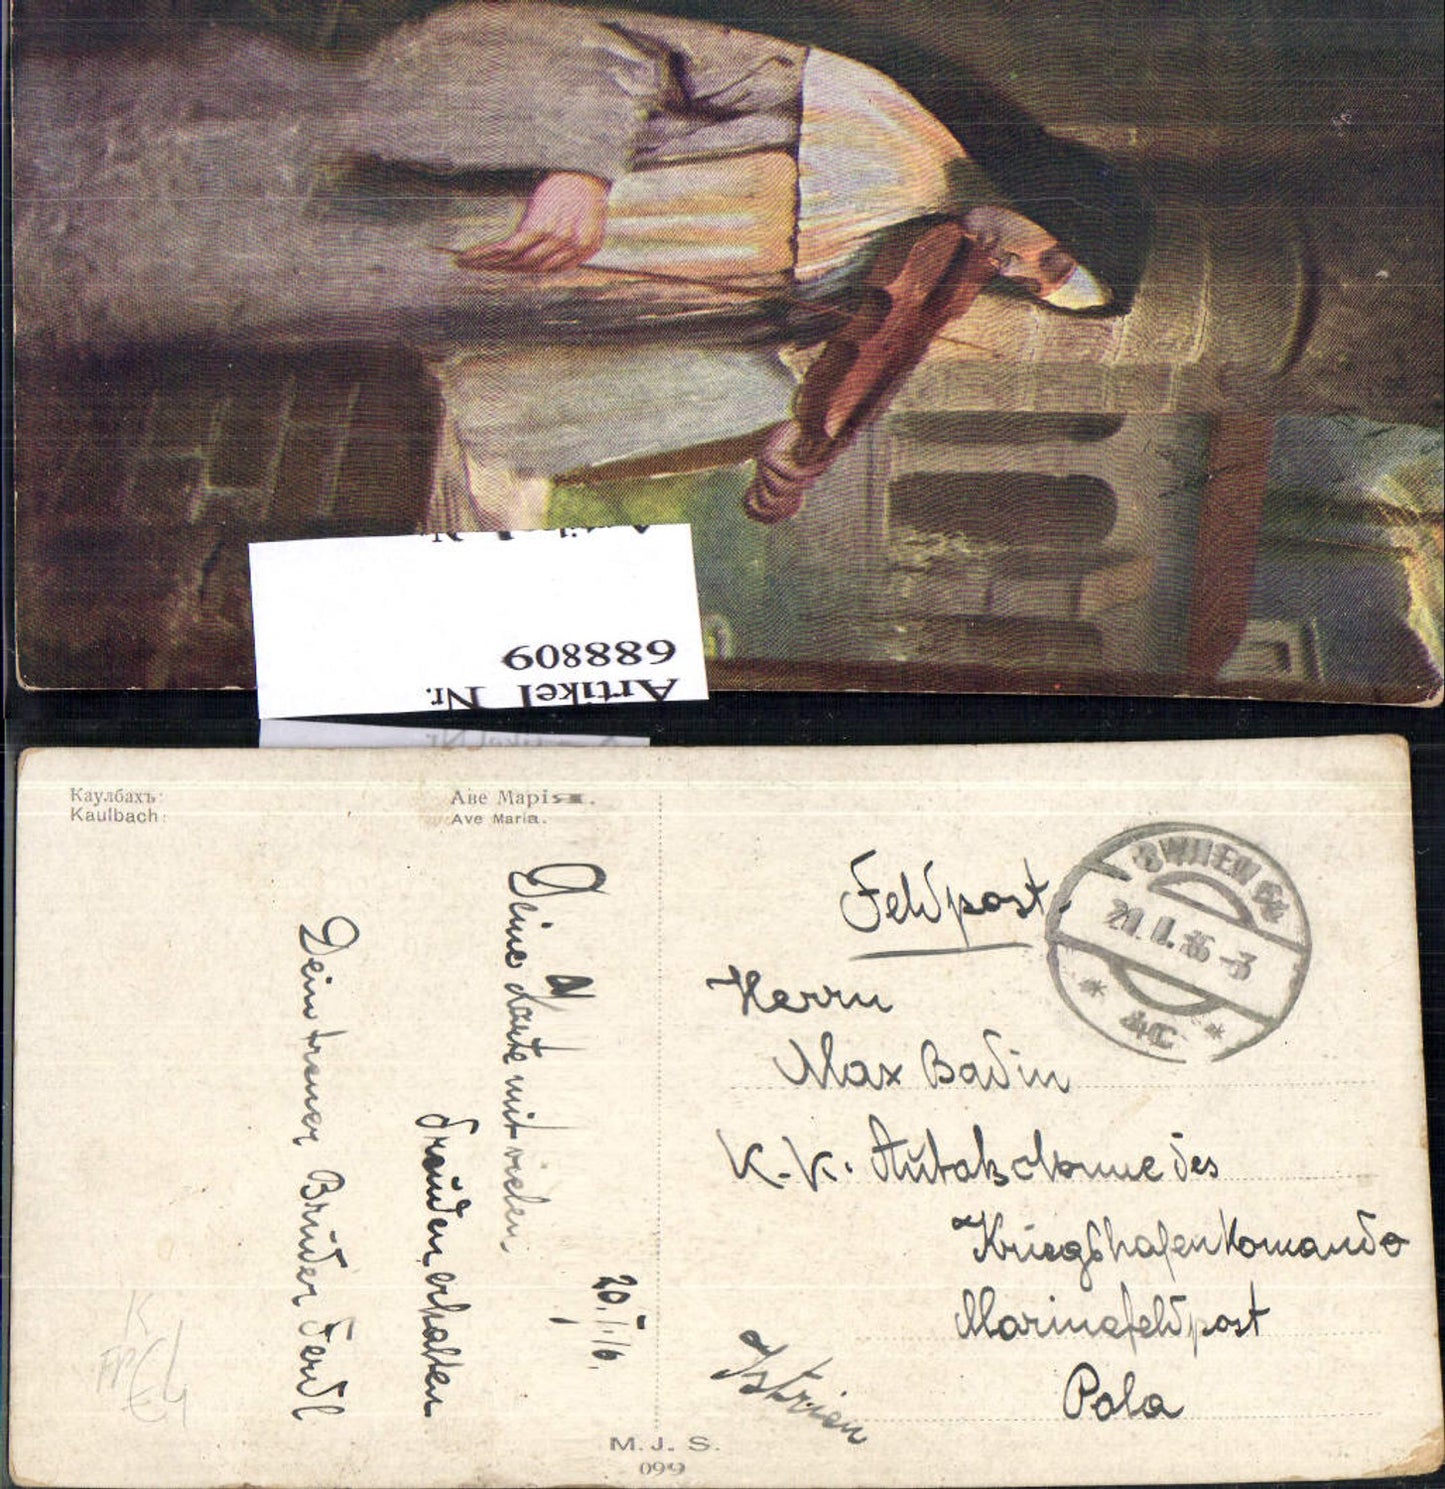 Artikel Nr.
688809
Artikel Nr.
Каулбахъ:
Kaulbach:
Аве Марія.
Ave Maria.
20./I. 16.
Deine Karte mit vielen
Freuden erhalten
Dein treuer Bruder Ferdl
Feldpost.
WIEN 64
21. I. 16 -3
* 4C *
Herrn
Max Badin
K. K. Autokolonne des
Kriegshafenkomando
Marinefeldpost
Pola
Istrien
M. J. S.
099
K